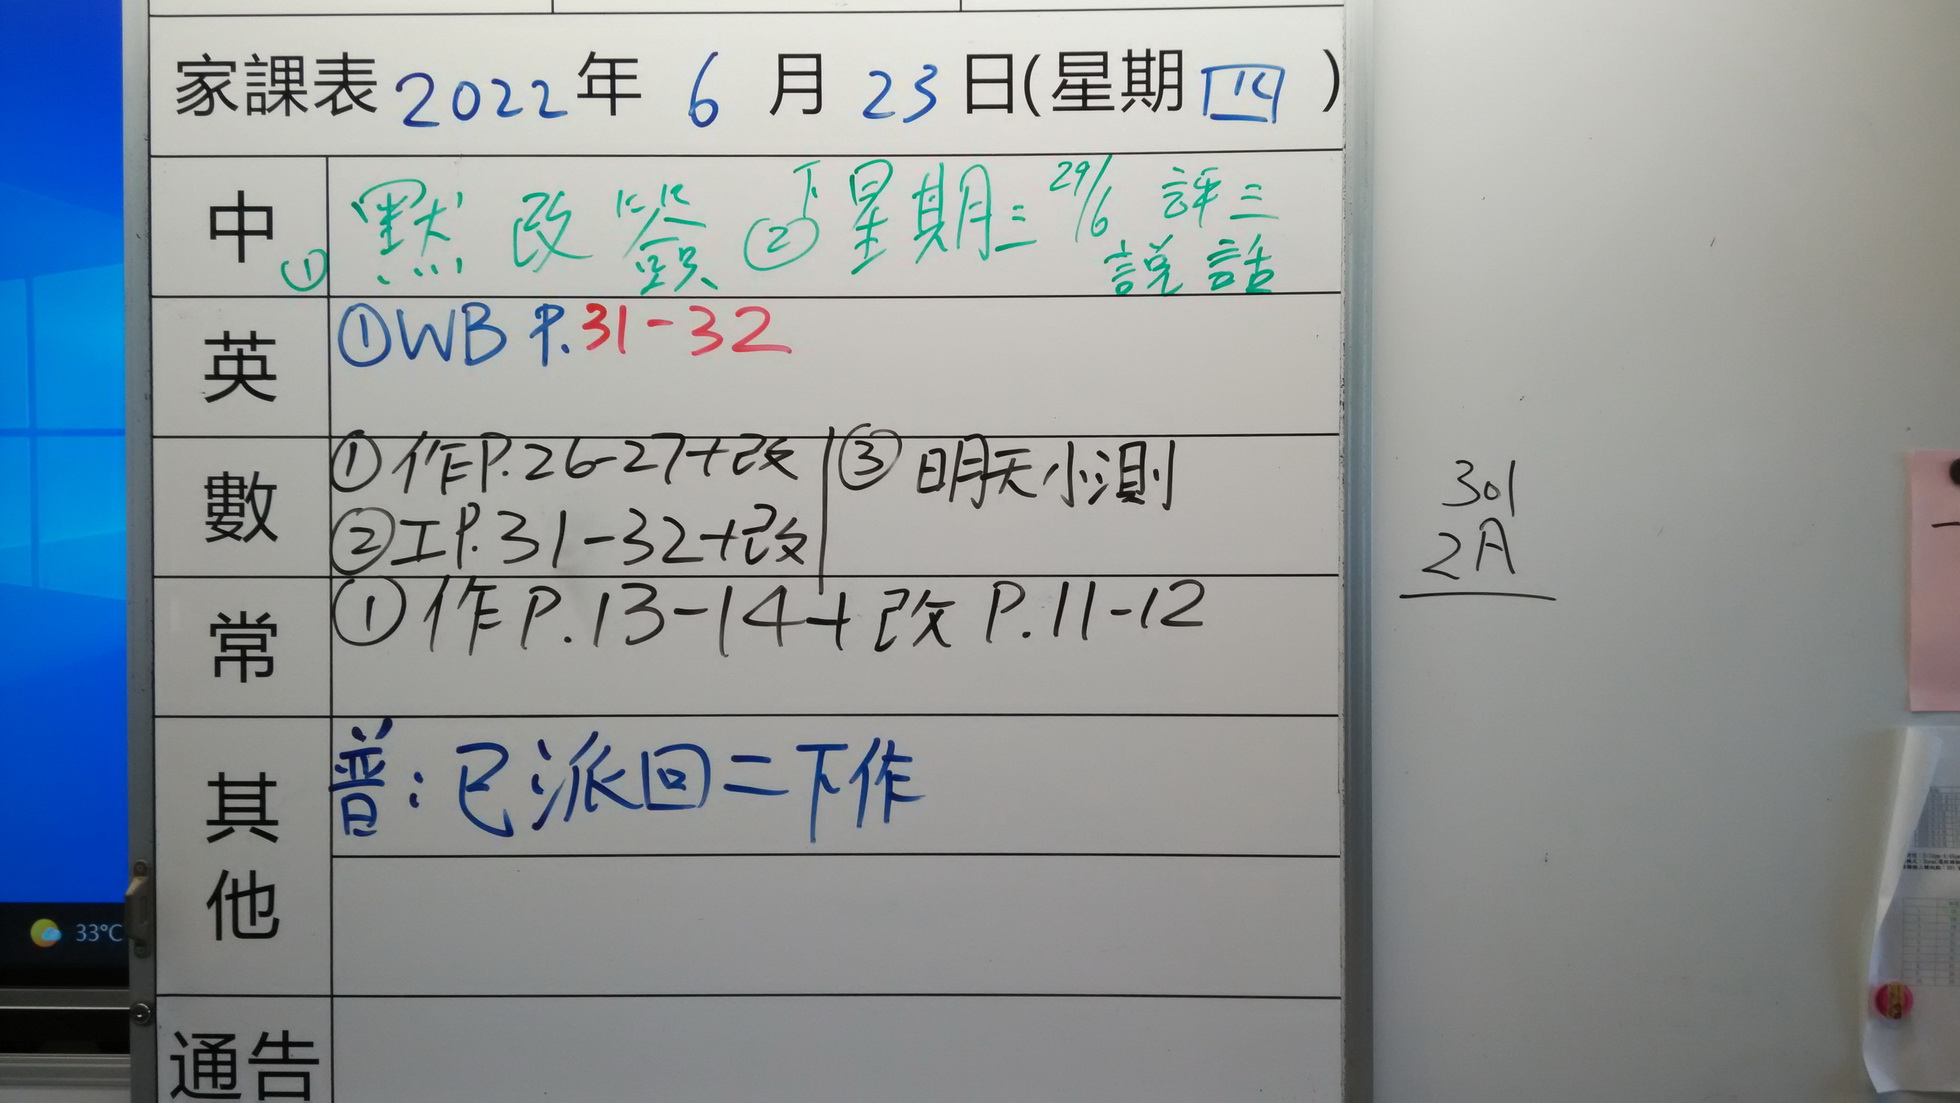 家課表 2022年 6月 23日(星期四)
中 ① 默改簽 ② 下星期三 29/6 評三
說話
英 ①WB P.31-32
數 ①作P.26-27+改 ③明天小測
②工P.31-32+改
常 ①作P.13-14+改P.11-12
其他 普:已派回二下作
通告
301
2A
33°C